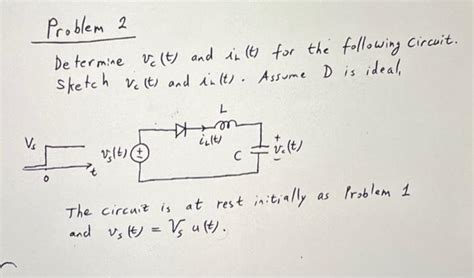 Problem 2
Determine v_c(t) and i_L(t) for the following circuit.
Sketch v_c(t) and i_L(t). Assume D is ideal.
L
V_s
v_s(t)
+
-
i_L(t)
C
+
v_c(t)
-
0
t
The circuit is at rest initially as Problem 1
and v_s(t) = V_s u(t).